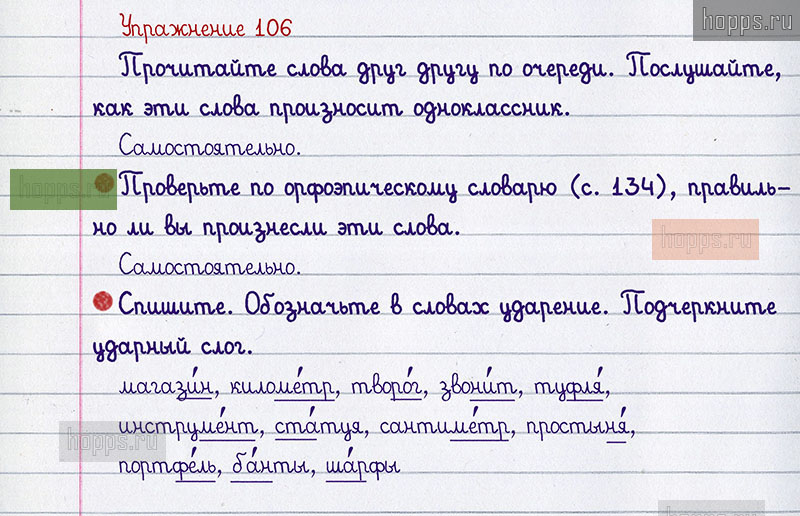 hopps.ru
Упражнение 106
Прочитайте слова друг другу по очереди. Послушайте,
как эти слова произносит одноклассник.
Самостоятельно.
hopps.ru
Проверьте по орфоэпическому словарю (с. 134), правиль-
но ли вы произнесли эти слова.
hopps.ru
Самостоятельно.
Спишите. Обозначьте в словах ударение. Подчеркните
ударный слог.
магази́н, киломе́тр, творо́г, звони́т, туфля́,
инструме́нт, ста́туя, сантиме́тр, простыня́,
hopps.ru
портфе́ль, ба́нты, ша́рфы
hopps.ru